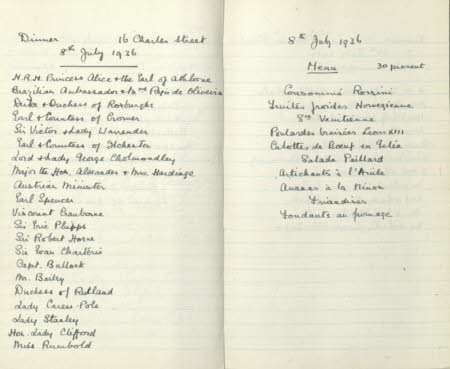 Dinner 16 Charles Street
8th July 1936
H.R.H. Princess Alice & the Earl of Athlone
Brazilian Ambassador & Mme Regis de Oliveira
Duke & Duchess of Roxburghe
Earl & Countess of Cromer
Sir Victor & Lady Warrender
Earl & Countess of Ilchester
Lord & Lady George Cholmondeley
Major the Hon. Alexander & Mrs. Hardinge
Austrian Minister
Earl Spencer
Viscount Cranborne
Sir Eric Phipps
Sir Robert Horne
Sir Evan Charteris
Capt. Bullock
Mr. Bailey
Duchess of Rutland
Lady Carew-Pole
Lady Stanley
Hon. Lady Clifford
Miss Rumbold
8th July 1936
Menu 30 present
Consommé Rossini
Truites froides Norvegienne
Sce Venitienne
Poulardes braisées Leon XIII
Culottes de Bœuf en Gelée
Salade Paillard
Artichauts à l'
Ananas à la Ninon
Friandises
Fondants au fromage